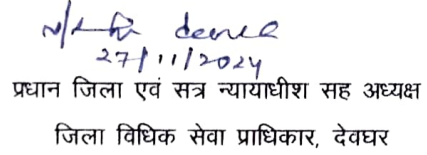 27/11/2024
प्रधान जिला एवं सत्र न्यायाधीश सह अध्यक्ष
जिला विधिक सेवा प्राधिकार, देवघर